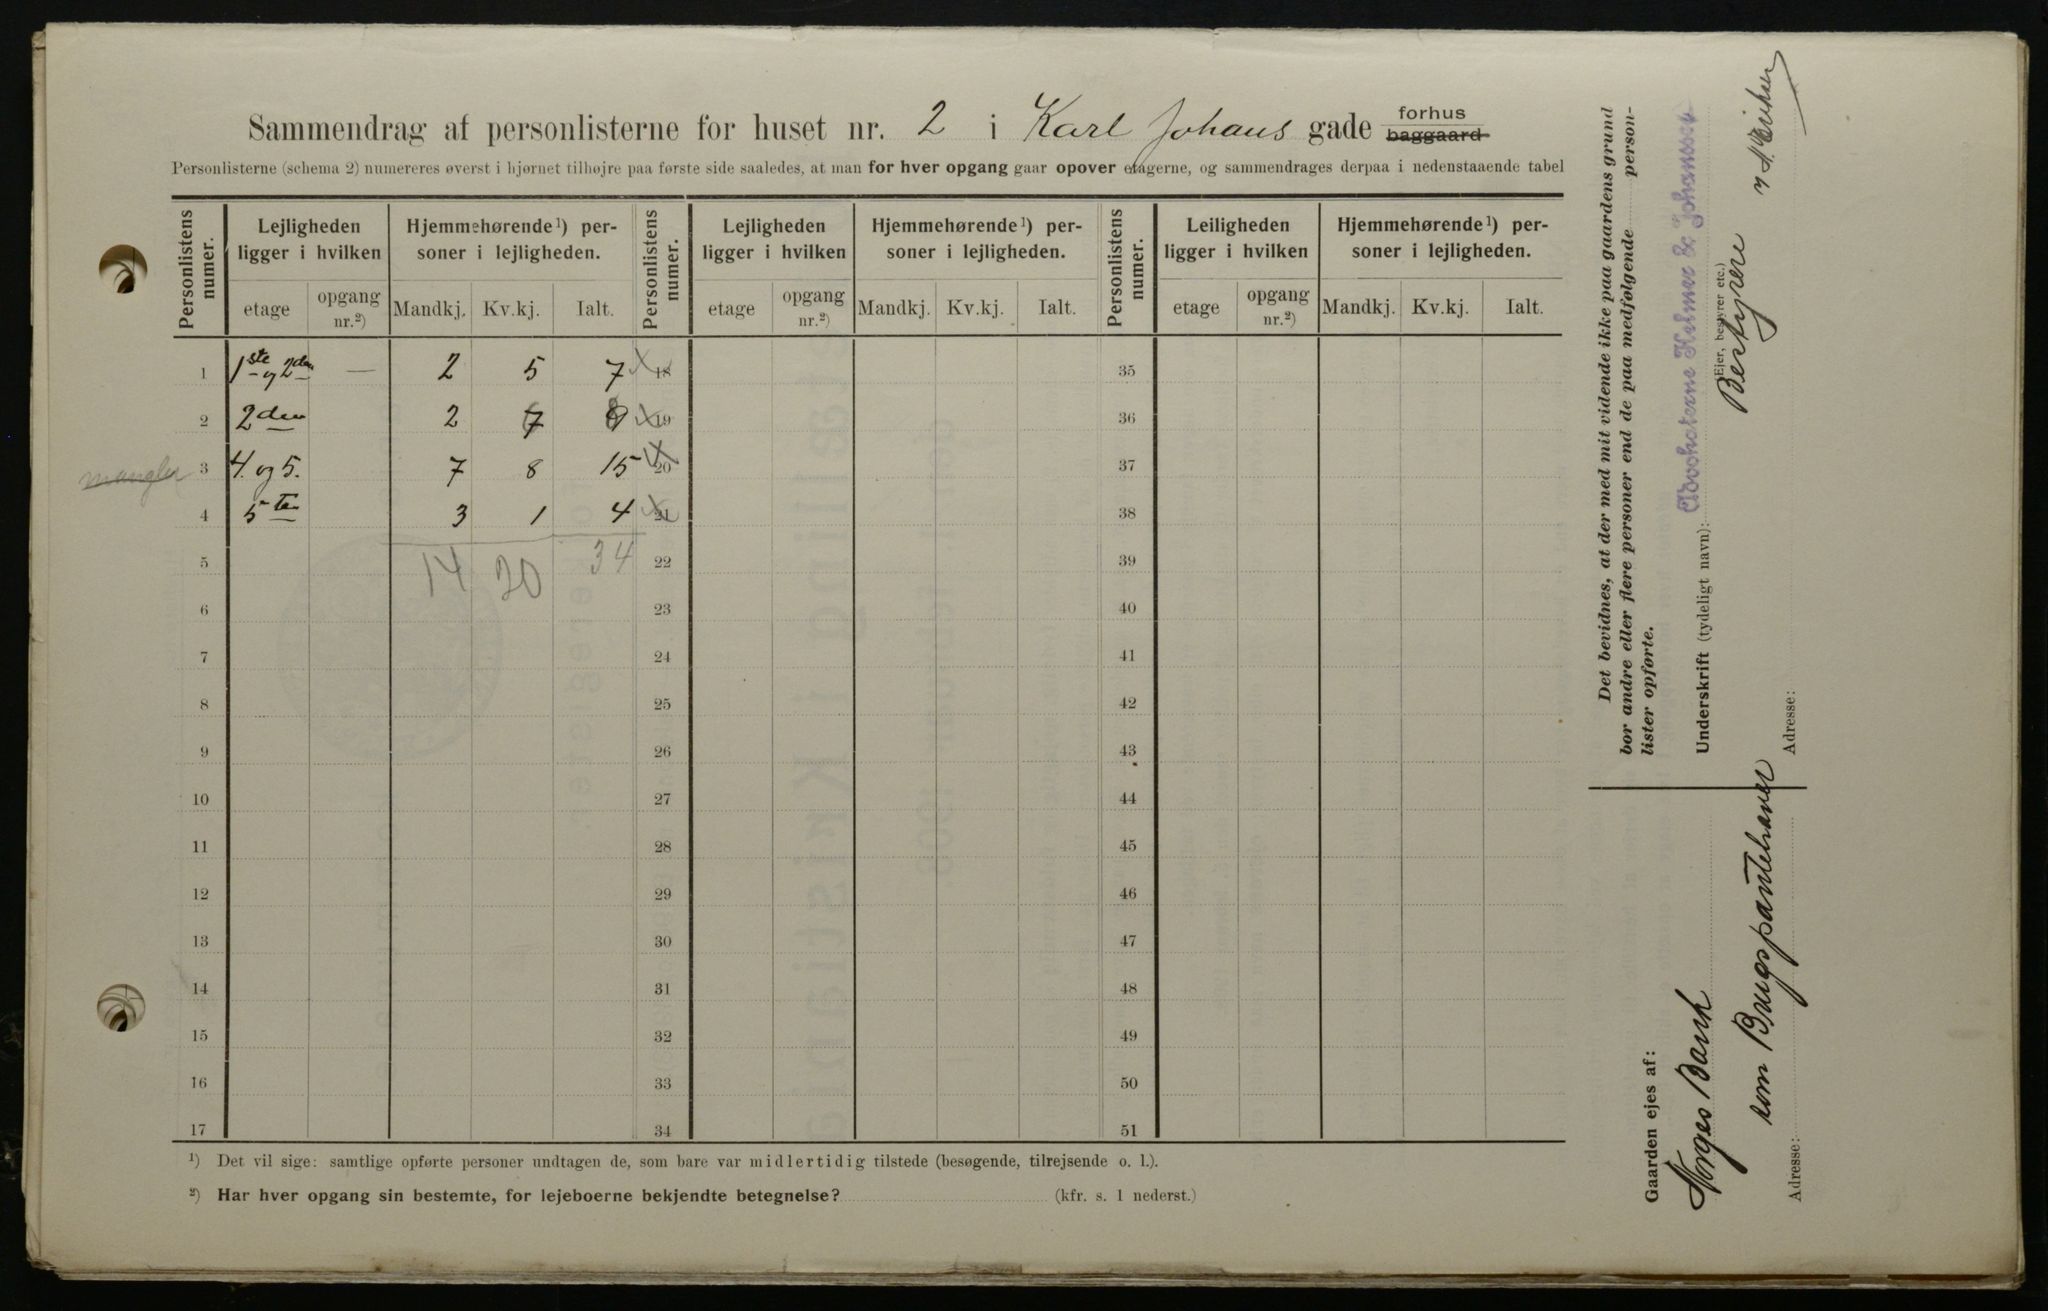 forhus
Sammendrag af personlisterne for huset nr. 2 i Karl Johans gade baggaard
Personlisterne (schema 2) numereres øverst i hjørnet tilhøjre paa første side saaledes, at man for hver opgang gaar opover etagerne, og sammendrages derpaa i nedenstaaende tabel
Personlistens numer. Lejligheden ligger i hvilken Hjemmehørende¹) personer i lejligheden. Personlistens numer. Lejligheden ligger i hvilken Hjemmehørende¹) personer i lejligheden. Personlistens numer. Leiligheden ligger i hvilken Hjemmehørende¹) personer i lejligheden.
etage opgang nr.²) Mandkj. Kv.kj. Ialt. etage opgang nr.²) Mandkj. Kv.kj. Ialt. etage opgang nr.²) Mandkj. Kv.kj. Ialt.
1 1ste og 2den — 2 5 7 18 35
2 2den 2 19 36
mangler 3 4. og 5. 7 8 15 20 37
4 5ten 3 1 4 21 38
5 14 20 34 22 39
6 23 40
7 24 41
8 25 42
9 26 43
10 27 44
11 28 45
12 29 46
13 30 47
14 31 48
15 32 49
16 33 50
17 34 51
¹) Det vil sige: samtlige opførte personer undtagen de, som bare var midlertidig tilstede (besøgende, tilrejsende o. l.).
²) Har hver opgang sin bestemte, for lejeboerne bekjendte betegnelse? (kfr. s. 1 nederst.)
Det bevidnes, at der med mit vidende ikke paa gaardens grund
bor andre eller flere personer end de paa medfølgende person-
lister opførte.
Underskrift (tydeligt navn): Advokaterne
(Ejer, bestyrer etc.)
Bestyrere
Adresse:
Gaarden ejes af:
Norges Bank
som Brugspantehaver
Adresse: